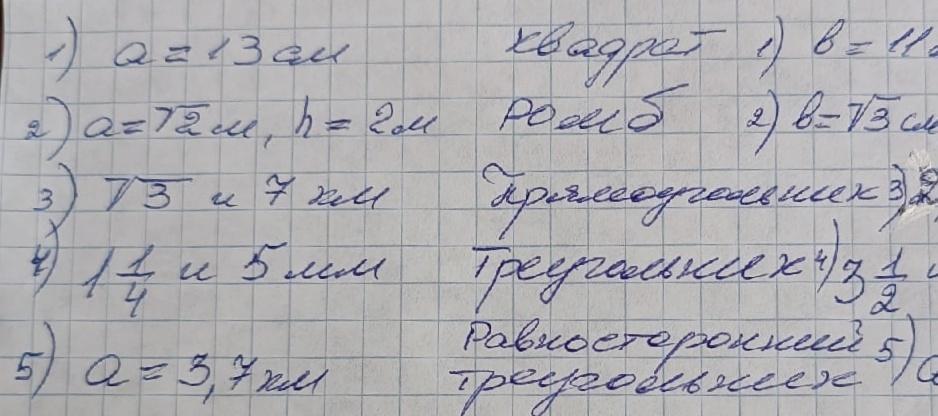 1) a = 13 см квадрат 1) b = 11
2) a = √2 м, h = 2 м Ромб 2) b = √3 см
3) √3 и 7 км Прямоугольник 3)
4) 1 1/4 и 5 мм Треугольник 4) 3 1/2
Равносторонний
5) a = 3,7 км треугольник 5)